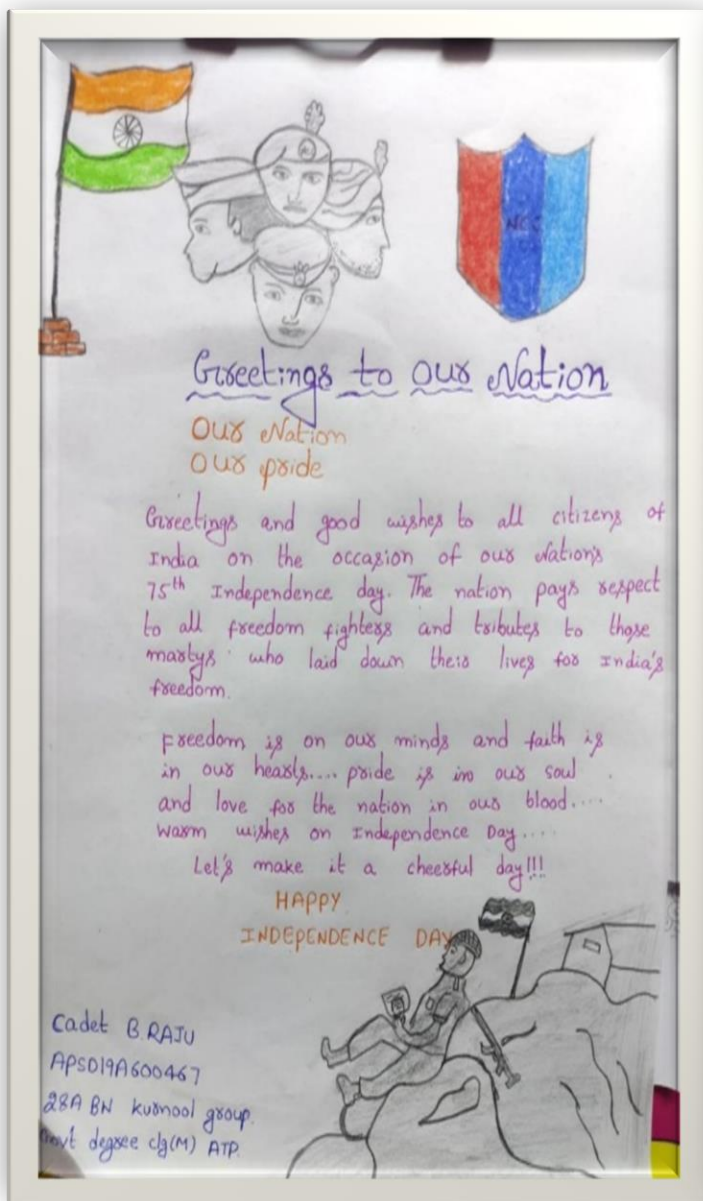 NCC
Greetings to Our Nation
Our Nation
Our pride
Greetings and good wishes to all citizens of
India on the occasion of our Nation's
75th Independence day. The nation pays respect
to all freedom fighters and tributes to those
martys who laid down their lives for India's
freedom.
Freedom is on our minds and faith is
in our hearts.... pride is in our soul
and love for the nation in our blood....
Warm wishes on Independence Day....
Let's make it a cheerful day!!!
HAPPY
INDEPENDENCE DAY
Cadet B.RAJU
APSD19A600467
28A BN kurnool group.
Govt degree clg(M) ATP.